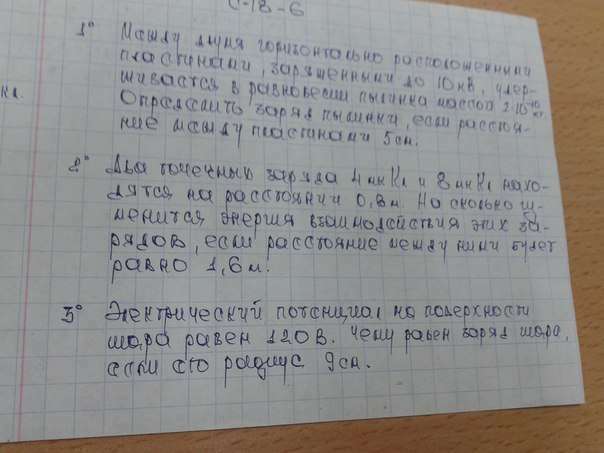 С-18-6
1° Между двумя горизонтально расположенными
пластинами, заряженными до 10 кВ, удер-
живается в равновесии пылинка массой 2·10⁻¹⁰ кг.
Определить заряд пылинки, если расстоя-
ние между пластинами 5 см.
2° Два точечных заряда 4 мкКл и 8 мкКл нахо-
дятся на расстоянии 0,8 м. На сколько из-
менится энергия взаимодействия этих за-
рядов, если расстояние между ними будет
равно 1,6 м.
3° Электрический потенциал на поверхности
шара равен 120 В. Чему равен заряд шара,
если его радиус 9 см.